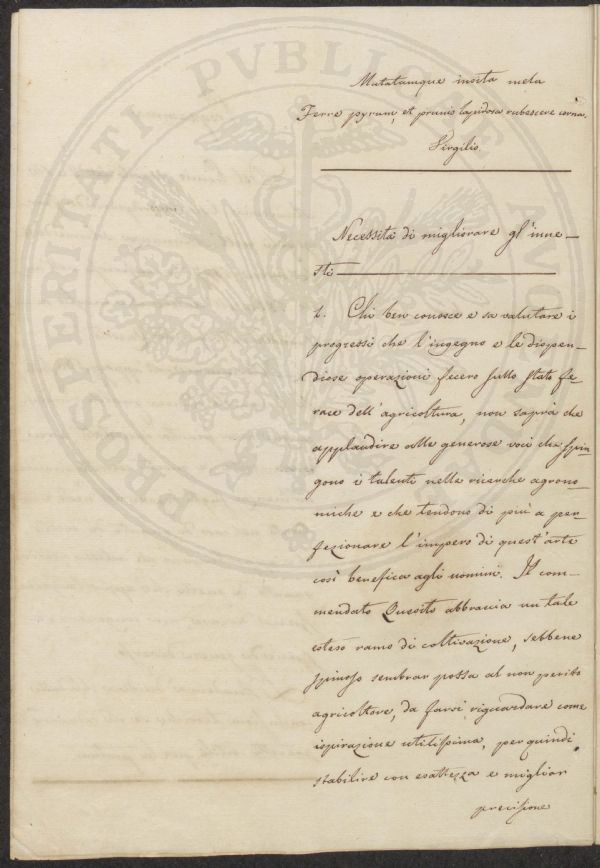 Mutatamque insita mela
Ferre pyrum, et prunis lapidosa rubescere corna.
Virgilio.
Necessità di migliorare gl'inne-
sti
1. Chi ben conosce e sa valutare i
progressi che l'ingegno e le dispen-
diose operazioni fecero sullo stato fe-
race dell'agricoltura, non saprà che
applaudire alle generose voci che spin-
gono i talenti nelle ricerche agrono-
miche e che tendono di più a per-
fezionare l'impero di quest'arte
così benefica agli uomini. Il com-
mendato Quesito abbraccia un tale
esteso ramo di coltivazione, sebbene
spinoso sembrar possa al non perito
agricoltore, da farsi riguardare come
ispirazione utilissima, per quindi
stabilire con esattezza e miglior
precisione
PROSPERITATI PUBLICAE